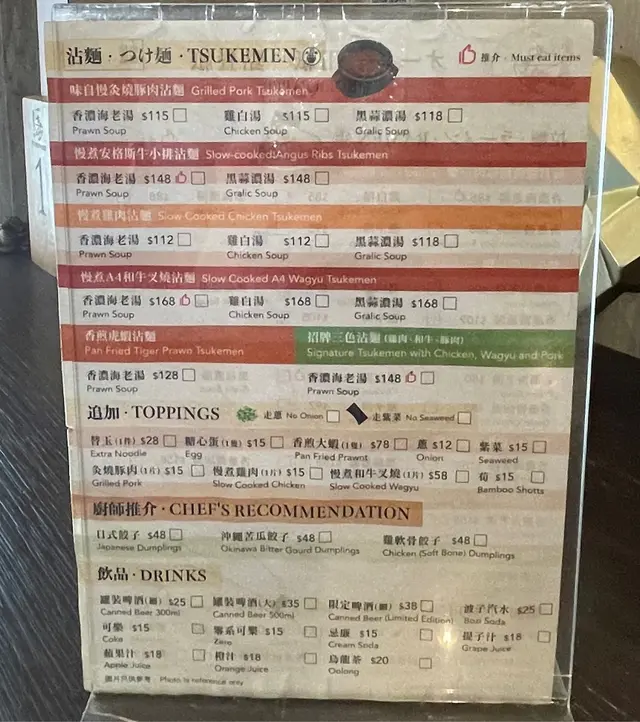 沾麵・つけ麺・TSUKEMEN 推介・Must eat items
味自慢炙燒豚肉沾麵 Grilled Pork Tsukemen
香濃海老湯 $115 雞白湯 $115 黑蒜濃湯 $118
Prawn Soup Chicken Soup Gralic Soup
慢煮安格斯牛小排沾麵 Slow-cooked Angus Ribs Tsukemen
香濃海老湯 $148 黑蒜濃湯 $148
Prawn Soup Gralic Soup
慢煮雞肉沾麵 Slow Cooked Chicken Tsukemen
香濃海老湯 $112 雞白湯 $112 黑蒜濃湯 $118
Prawn Soup Chicken Soup Gralic Soup
慢煮A4和牛叉燒沾麵 Slow Cooked A4 Wagyu Tsukemen
香濃海老湯 $168 雞白湯 $168 黑蒜濃湯 $168
Prawn Soup Chicken Soup Gralic Soup
香煎虎蝦沾麵 招牌三色沾麵 (雞肉、和牛、豚肉)
Pan Fried Tiger Prawn Tsukemen Signature Tsukemen with Chicken, Wagyu and Pork
香濃海老湯 $128 香濃海老湯 $148
Prawn Soup Prawn Soup
追加・TOPPINGS 走蔥 No Onion 走紫菜 No Seaweed
替玉(1件) $28 糖心蛋(1隻) $15 香煎大蝦(1隻) $78 蔥 $12 紫菜 $15
Extra Noodle Egg Pan Fried Prawnt Onion Seaweed
炙燒豚肉(1片) $15 慢煮雞肉(1片) $15 慢煮和牛叉燒(1片) $58 筍 $15
Grilled Pork Slow Cooked Chicken Slow Cooked Wagyu Bamboo Shotts
廚師推介・CHEF'S RECOMMENDATION
日式餃子 $48 沖繩苦瓜餃子 $48 雞軟骨餃子 $48
Japanese Dumplings Okinawa Bitter Gourd Dumplings Chicken (Soft Bone) Dumplings
飲品・DRINKS
罐裝啤酒(細) $25 罐裝啤酒(大) $35 限定啤酒(細) $38 波子汽水 $25
Canned Beer 300ml Canned Beer 500ml Canned Beer (Limited Edition) Bozi Soda
可樂 $15 零系可樂 $15 忌廉 $15 提子汁 $18
Coke Zero Cream Soda Grape Juice
蘋果汁 $18 橙汁 $18 烏龍茶 $20
Apple Juice Orange Juice Oolong
圖片只供參考 Photo is reference only